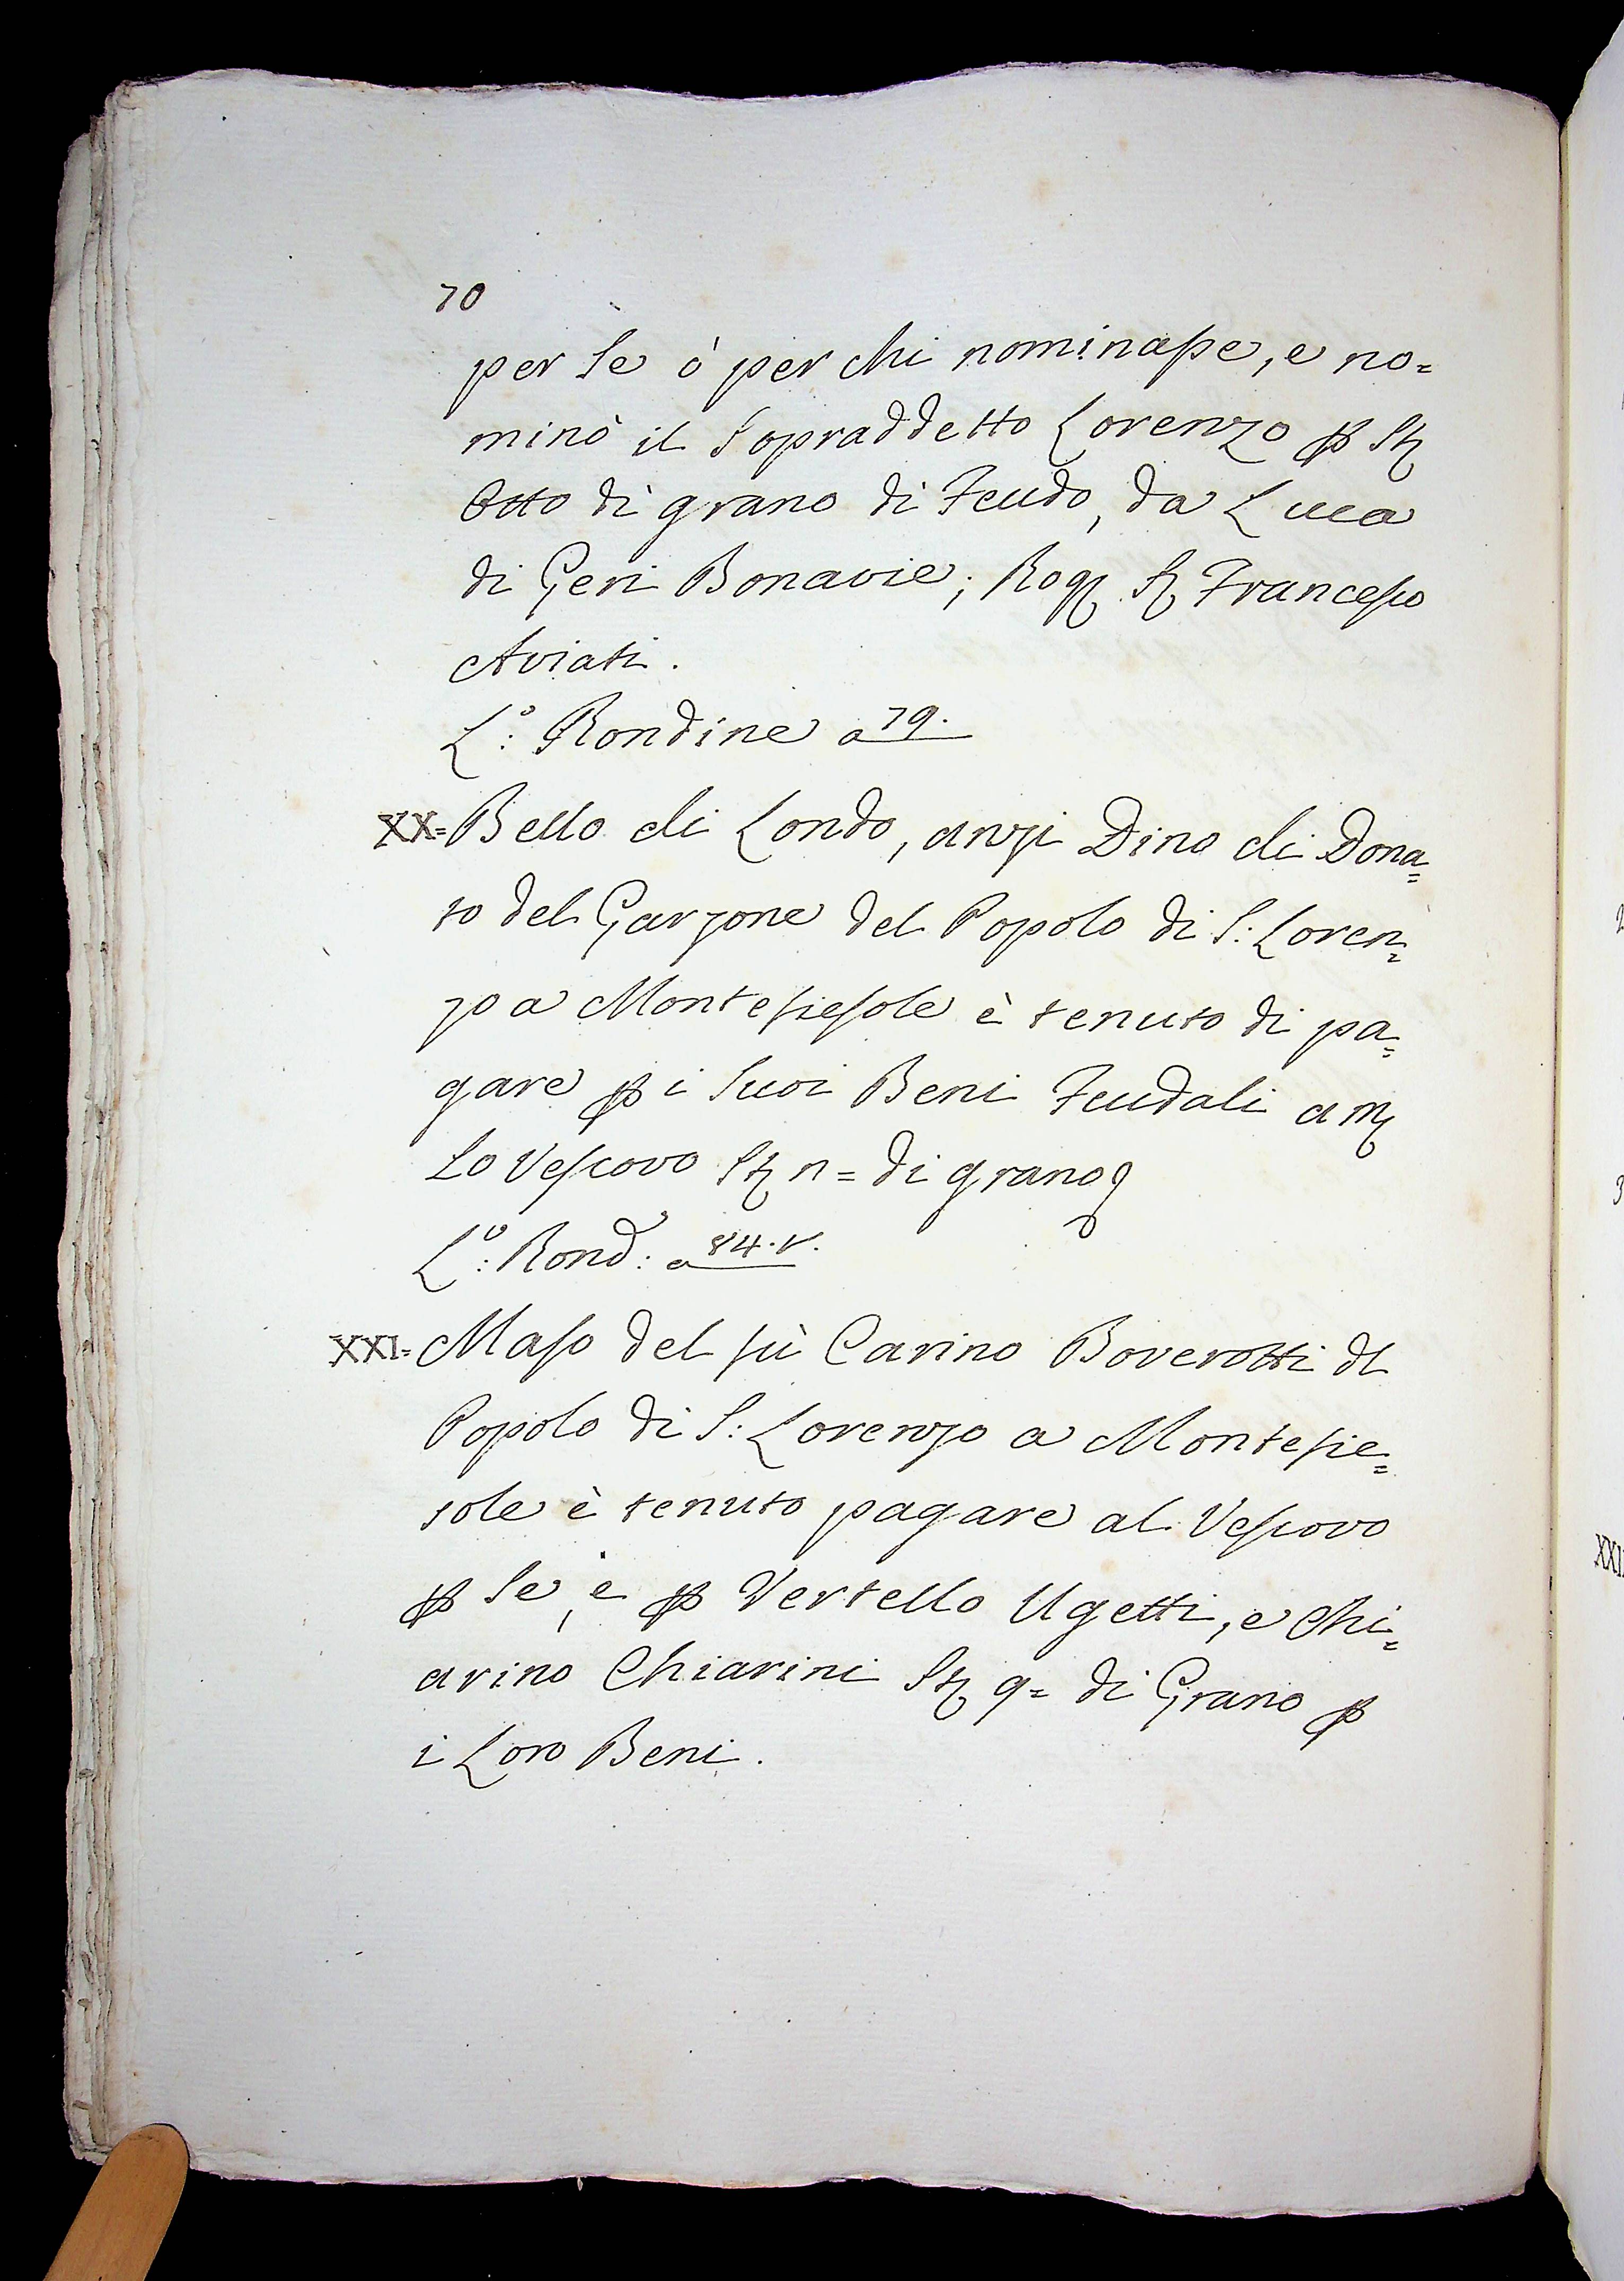 70
per se ò per chi nominasse, e no=
minò il Sopraddetto Lorenzo ꝑ St
Otto di grano di Feudo, da Luca
di Geri Bonavie; Rog Sr Francesco
Aviati.
L°: Rondine a 79.
XX= Bello di Londo, anzi Dino di Dona=
to del Garzone del Popolo di S: Loren=
zo a Montefiesole è tenuto di pa=
gare ꝑ i suoi Beni Feudali a m
Lo Vescovo St n= di grano
L°: Rond: a 84.v.
XXI= Maso del fù Carino Boverotti dl
Popolo di S: Lorenzo a Montefie=
sole è tenuto pagare al Vescovo
ꝑ se, e ꝑ Vertello Ugetti, e Chi=
arino Chiarini St 9= di Grano ꝑ
i Loro Beni.